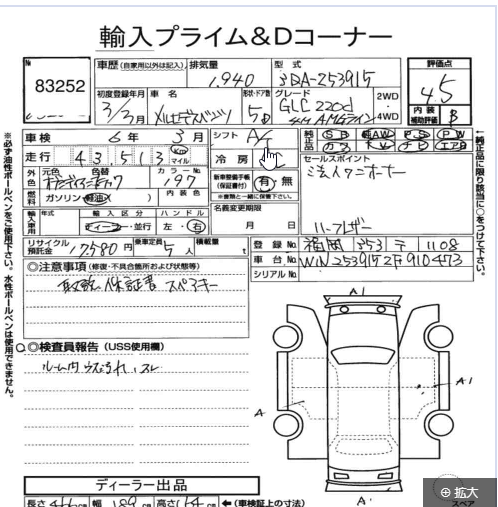 輸入プライム&Dコーナー
№ 83252
車歴(自家用以外は記入) 排気量 1,940 型式 3DA-253915
評価点 4.5
内装補助評価 B
初度登録年月 3/3月 車名 メルセデスベンツ 形状・ドア数 5D グレード GLC220d 4M AMGライン 2WD 4WD
車検 6年 3月 シフト A
走行 43513 km マイル 冷房
純正品 SR AW PS PW
カワ TV ナビ エアB
外色 元色 色替 カラーNo. 197
燃料 ガソリン・軽油 内装色
新車整備手帳(保証書付) 有・無
※書類と一緒に保管下さい。
セールスポイント
法人ワンオーナー
輸入車用 年式 輸入区分 ハンドル
ディーラー・並行 左・右
名義変更期限 月 日
リサイクル預託金 17580円 乗車定員 5人 積載量 t
登録No. 福岡 353 1108
車台No. W1N2539152F910473
シリアルNo.
◎注意事項(修復・不具合箇所および状態等)
取説 保証書 スペアキー
◎検査員報告(USS使用欄)
ルーム内ウス汚れ、スレ
A1
A
A1
A
ディーラー出品
長さ 466cm 幅 189cm 高さ 164cm ←(車検証上の寸法)
スペア
※必ず油性ボールペンをご使用下さい。水性ボールペンは使用できません。
←純正品に限り該当に○をつけて下さい。
拡大